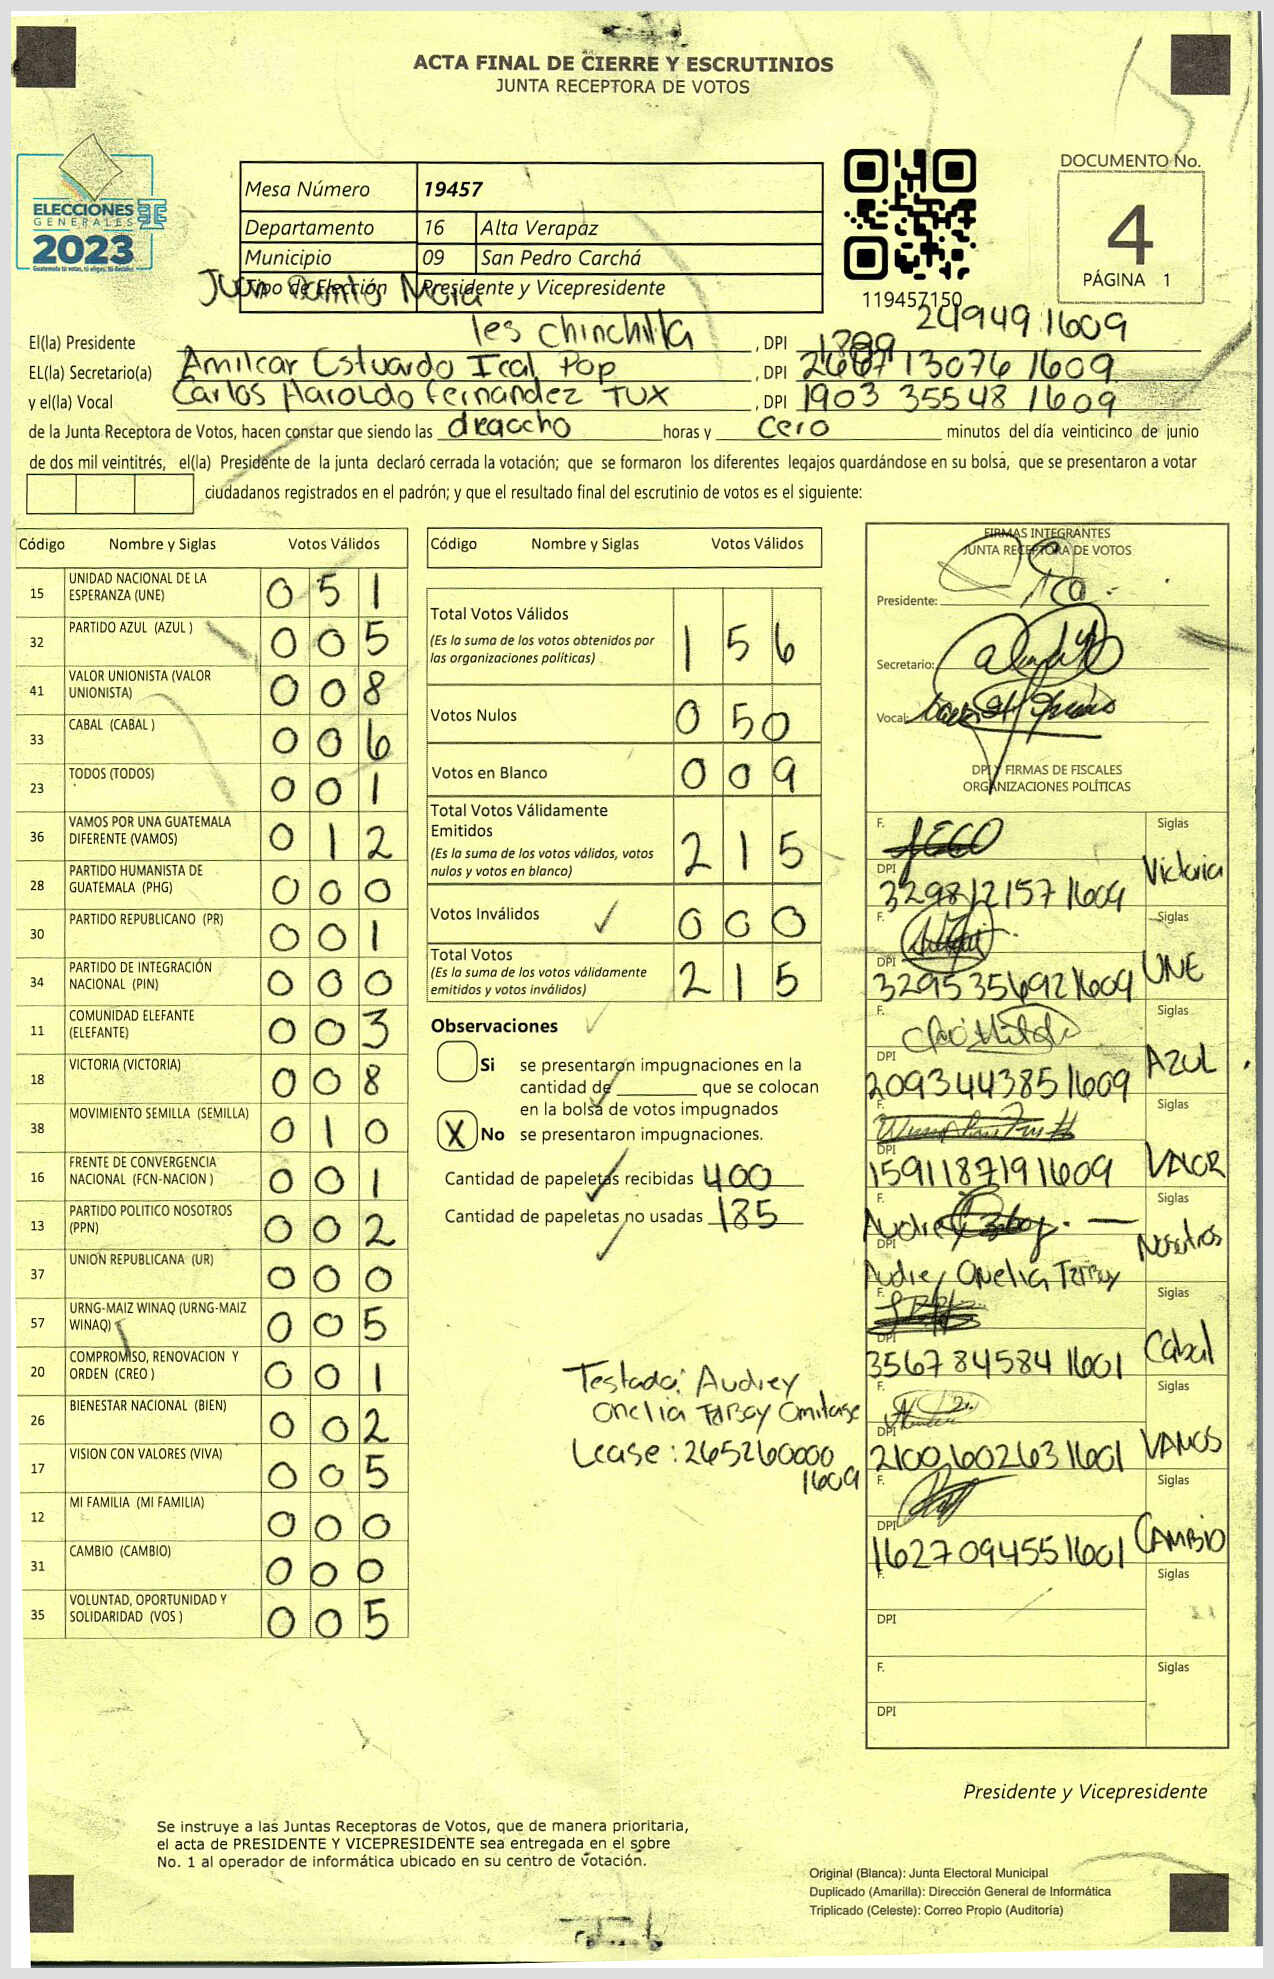 ACTA FINAL DE CIERRE Y ESCRUTINIOS
JUNTA RECEPTORA DE VOTOS
ELECCIONES
GENERALES
2023
Mesa Número 19457
Departamento 16 Alta Verapaz
Municipio 09 San Pedro Carchá
Tipo de Elección Presidente y Vicepresidente
119457150
DOCUMENTO No.
4
PÁGINA 1
Juan Mora
les Chinchilla
24949 1609
El(la) Presidente , DPI
EL(la) Secretario(a) Amilcar Estuardo Ical Pop , DPI 13076 1609
y el(la) Vocal Carlos Haroldo Fernandez TUX , DPI 1903 35548 1609
de la Junta Receptora de Votos, hacen constar que siendo las horas y cero minutos del día veinticinco de junio
de dos mil veintitrés, el(la) Presidente de la junta declaró cerrada la votación; que se formaron los diferentes legajos guardándose en su bolsa, que se presentaron a votar
ciudadanos registrados en el padrón; y que el resultado final del escrutinio de votos es el siguiente:
Código Nombre y Siglas Votos Válidos
15 UNIDAD NACIONAL DE LA ESPERANZA (UNE) 0 5 1
32 PARTIDO AZUL (AZUL ) 0 0 5
41 VALOR UNIONISTA (VALOR UNIONISTA) 0 0 8
33 CABAL (CABAL ) 0 0 6
23 TODOS (TODOS) 0 0 1
36 VAMOS POR UNA GUATEMALA DIFERENTE (VAMOS) 0 1 2
28 PARTIDO HUMANISTA DE GUATEMALA (PHG) 0 0 0
30 PARTIDO REPUBLICANO (PR) 0 0 1
34 PARTIDO DE INTEGRACIÓN NACIONAL (PIN) 0 0 0
11 COMUNIDAD ELEFANTE (ELEFANTE) 0 0 3
18 VICTORIA (VICTORIA) 0 0 8
38 MOVIMIENTO SEMILLA (SEMILLA) 0 1 0
16 FRENTE DE CONVERGENCIA NACIONAL (FCN-NACION ) 0 0 1
13 PARTIDO POLITICO NOSOTROS (PPN) 0 0 2
37 UNION REPUBLICANA (UR) 0 0 0
57 URNG-MAIZ WINAQ (URNG-MAIZ WINAQ) 0 0 5
20 COMPROMISO, RENOVACION Y ORDEN (CREO ) 0 0 1
26 BIENESTAR NACIONAL (BIEN) 0 0 2
17 VISION CON VALORES (VIVA) 0 0 5
12 MI FAMILIA (MI FAMILIA) 0 0 0
31 CAMBIO (CAMBIO) 0 0 0
35 VOLUNTAD, OPORTUNIDAD Y SOLIDARIDAD (VOS ) 0 0 5
Código Nombre y Siglas Votos Válidos
Total Votos Válidos 1 5 6
(Es la suma de los votos obtenidos por las organizaciones políticas)
Votos Nulos 0 5 0
Votos en Blanco 0 0 9
Total Votos Válidamente Emitidos 2 1 5
(Es la suma de los votos válidos, votos nulos y votos en blanco)
Votos Inválidos 0 0 0
Total Votos 2 1 5
(Es la suma de los votos válidamente emitidos y votos inválidos)
Observaciones
Si se presentaron impugnaciones en la
cantidad de que se colocan
en la bolsa de votos impugnados
X No se presentaron impugnaciones.
Cantidad de papeletas recibidas 400
Cantidad de papeletas no usadas 185
Testado: Audrey
Onelia Omitase
Lease: 265260000
1609
FIRMAS INTEGRANTES
JUNTA RECEPTORA DE VOTOS
Presidente:
Secretario:
Vocal:
DPI Y FIRMAS DE FISCALES
ORGANIZACIONES POLÍTICAS
F. Siglas Victoria
DPI 3298121571609
F. Siglas UNE
DPI 3295356921609
F. Siglas AZUL
DPI 2093443851609
F. Siglas VALOR
DPI 1591187191609
F. Audrey Siglas Nosotros
DPI Audrey Onelia
F. Siglas Cabal
DPI 3567845841601
F. Siglas VAMOS
DPI 2100602631601
F. Siglas CAMBIO
DPI 1627094551601
F. Siglas
DPI
F. Siglas
DPI
Presidente y Vicepresidente
Se instruye a las Juntas Receptoras de Votos, que de manera prioritaria,
el acta de PRESIDENTE Y VICEPRESIDENTE sea entregada en el sobre
No. 1 al operador de informática ubicado en su centro de votación.
Original (Blanca): Junta Electoral Municipal
Duplicado (Amarilla): Dirección General de Informática
Triplicado (Celeste): Correo Propio (Auditoría)